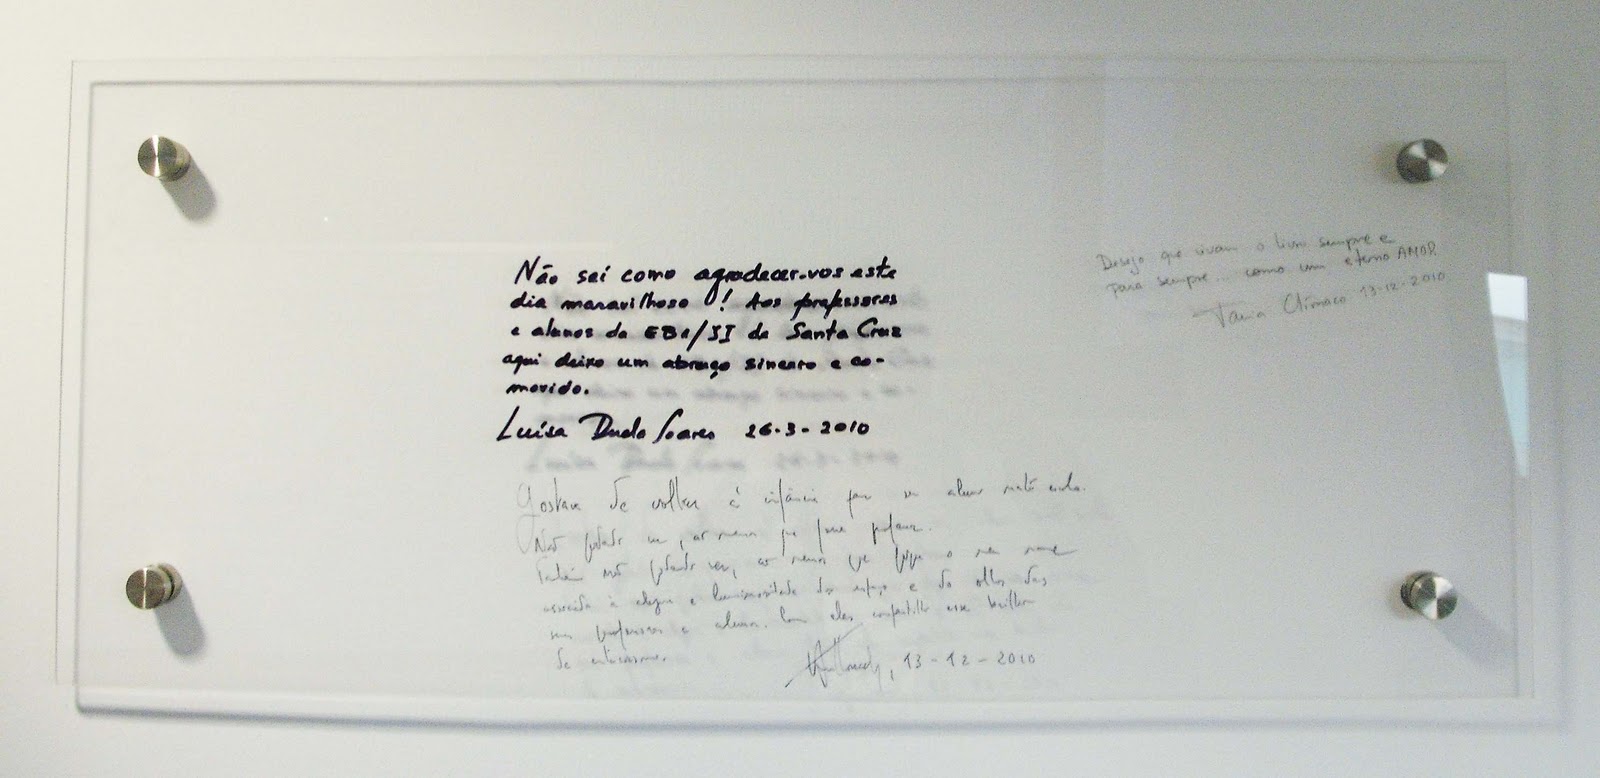 Não sei como agradecer-vos este
dia maravilhoso! Aos professores
e alunos da EB1/JI de Santa Cruz
aqui deixo um abraço sincero e co-
movido.
Luísa Ducla Soares 26-3-2010
Desejo que vivam o livro sempre e
para sempre... como um eterno AMOR
Tânia Clímaco 13-12-2010
Gostava de voltar à infância para ser aluno nesta escola.
Não podendo ser, ao menos que fosse professor.
Também não podendo ser, ao menos que fique o meu nome
associado à alegria e luminosidade do espaço e do olhar dos
seus professores e alunos. Com eles compartilho esse brilho
de entusiasmo.
13-12-2010